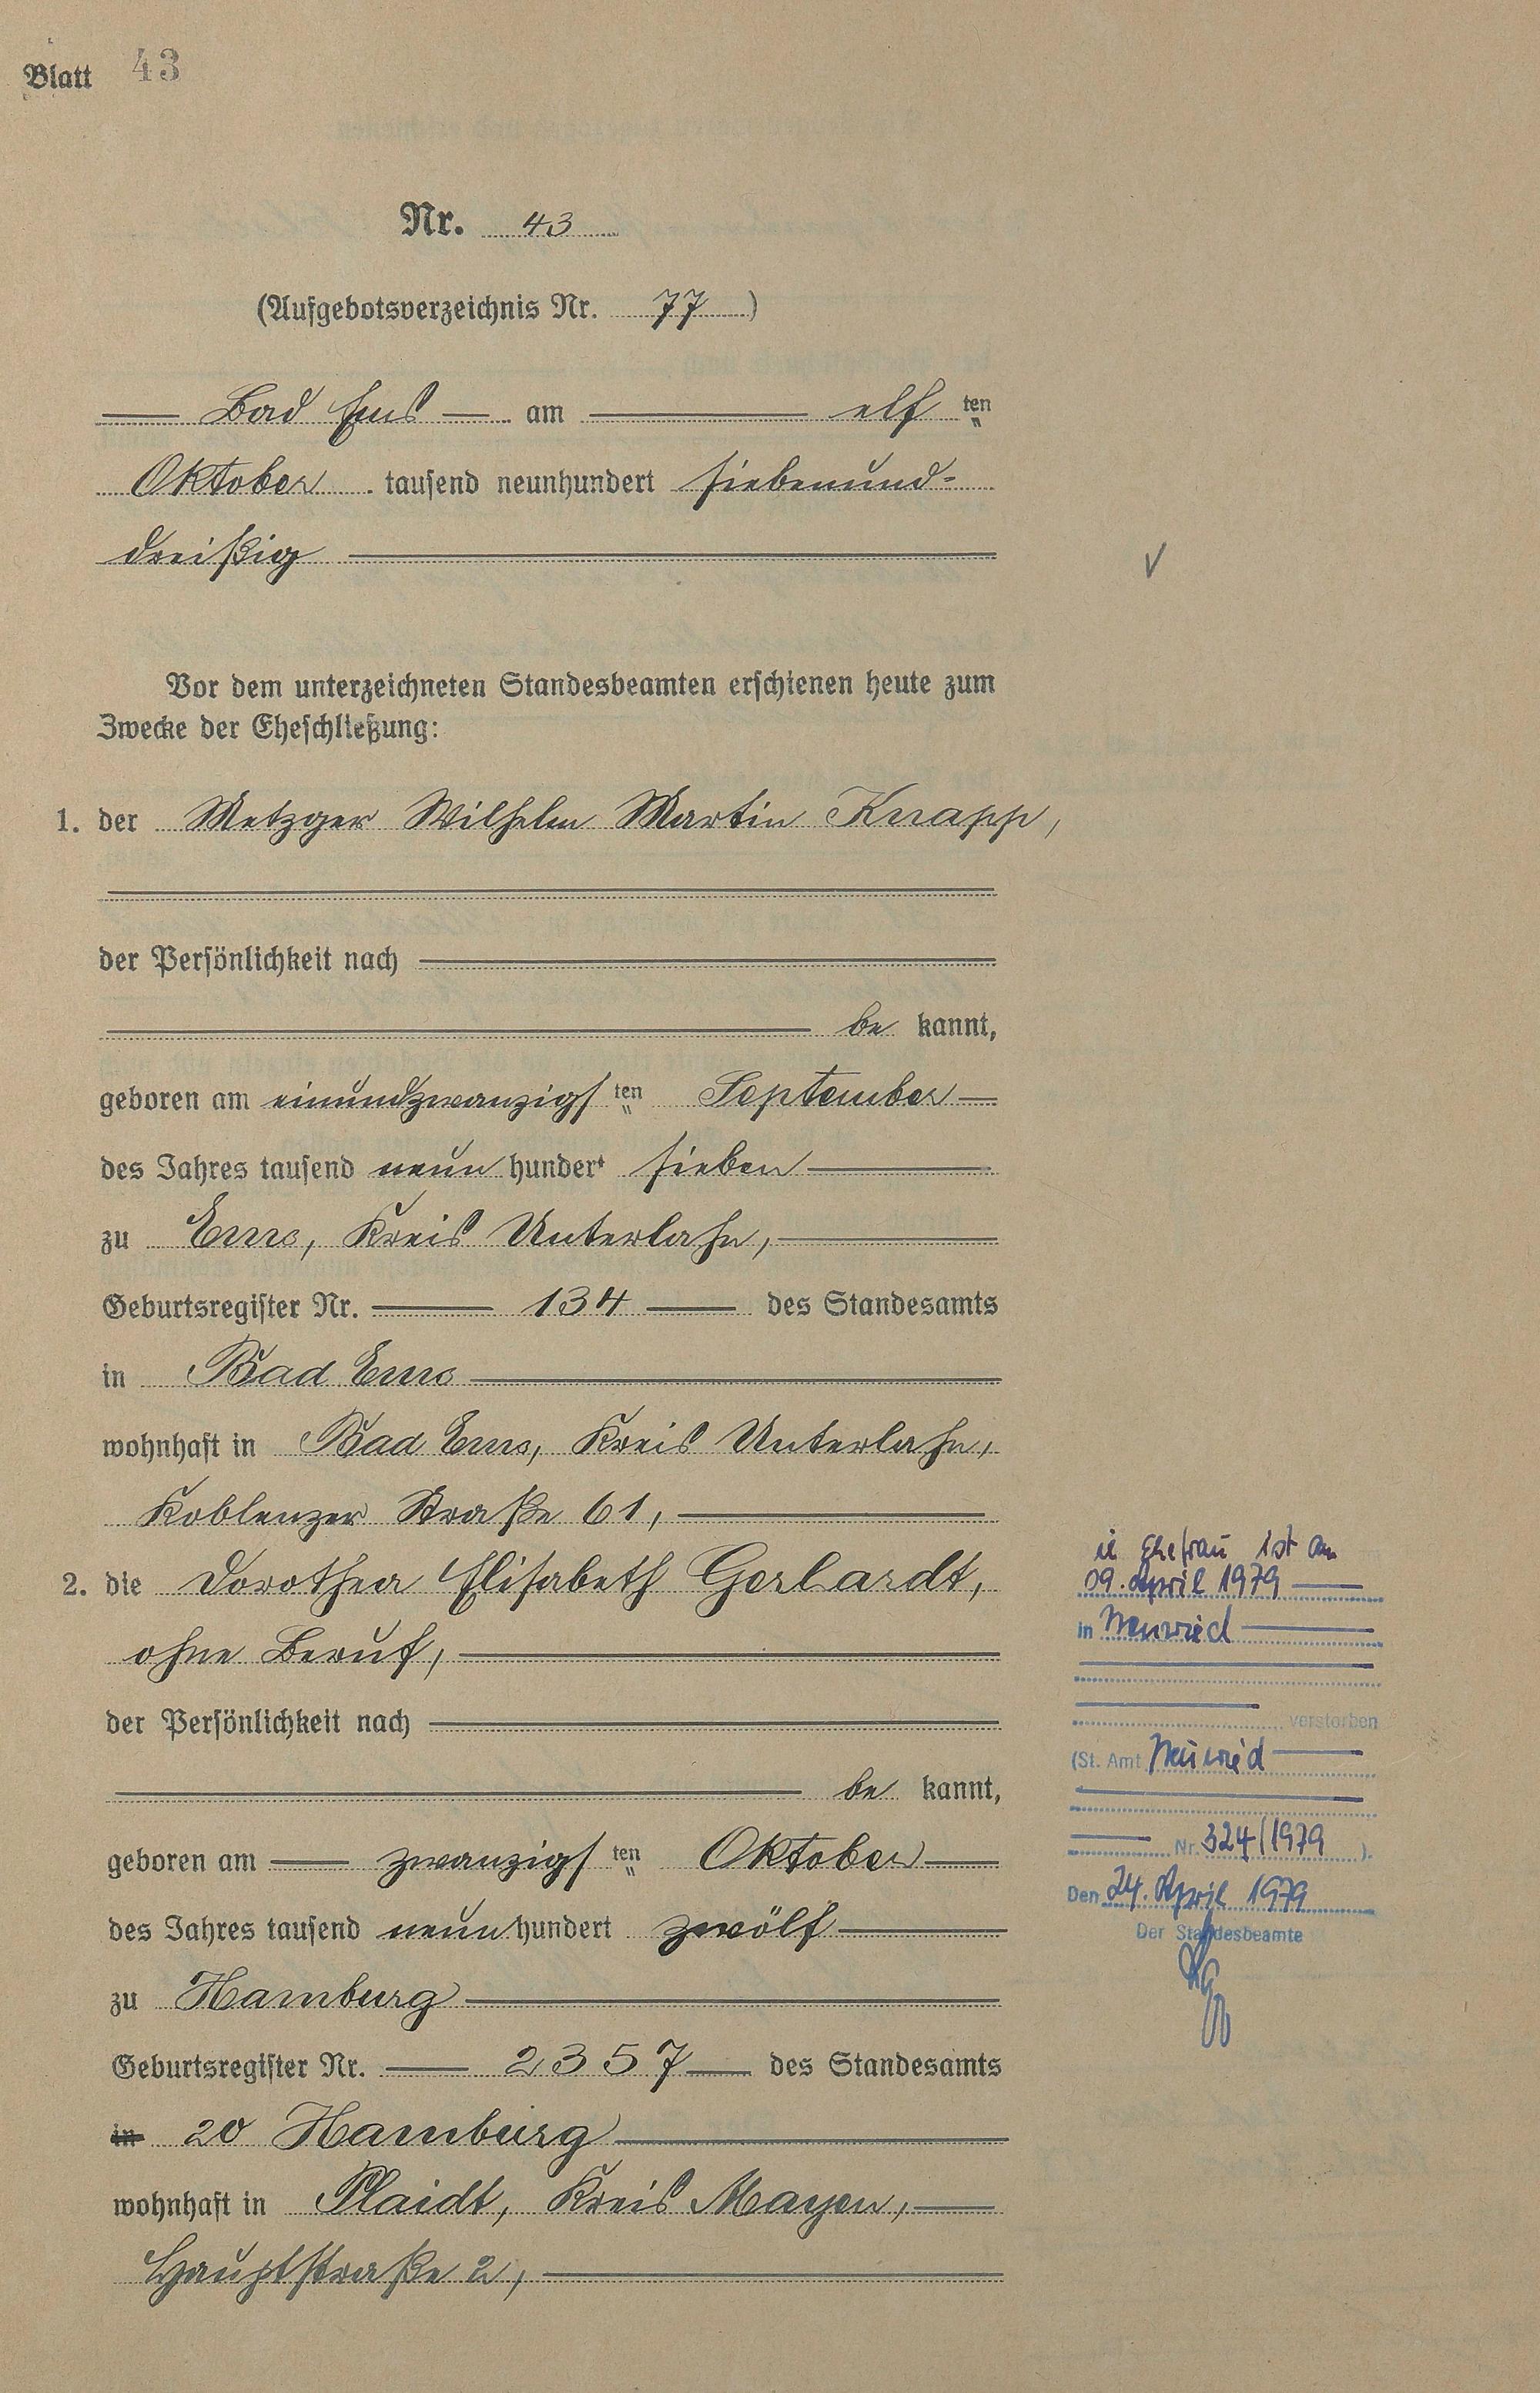 Blatt 43
Nr. 43
(Aufgebotsverzeichnis Nr. 77)
Bad Ems am elf ten
Oktober tausend neunhundert siebenund-
dreißig
Vor dem unterzeichneten Standesbeamten erschienen heute zum
Zwecke der Eheschließung:
1. der Metzger Wilhelm Martin Knapp,
der Persönlichkeit nach
be kannt,
geboren am einundzwanzigs ten September
des Jahres tausend neun hundert sieben
zu Ems, Kreis Unterlahn,
Geburtsregister Nr. 134 des Standesamts
in Bad Ems
wohnhaft in Bad Ems, Kreis Unterlahn,
Koblenzer Straße 61,
2. die Dorothea Elisabeth Gerhardt,
ohne Beruf,
der Persönlichkeit nach
be kannt,
geboren am zwanzigs ten Oktober
des Jahres tausend neun hundert zwölf
zu Hamburg
Geburtsregister Nr. 2357 des Standesamts
in 20 Hamburg
wohnhaft in Plaidt, Kreis Mayen,
Hauptstraße 2,
Ehefrau ist am
09. April 1979
in Neuwied
verstorben
(St. Amt Neuwied
Nr. 324/1979 ).
Den 24. April 1979
Der Standesbeamte